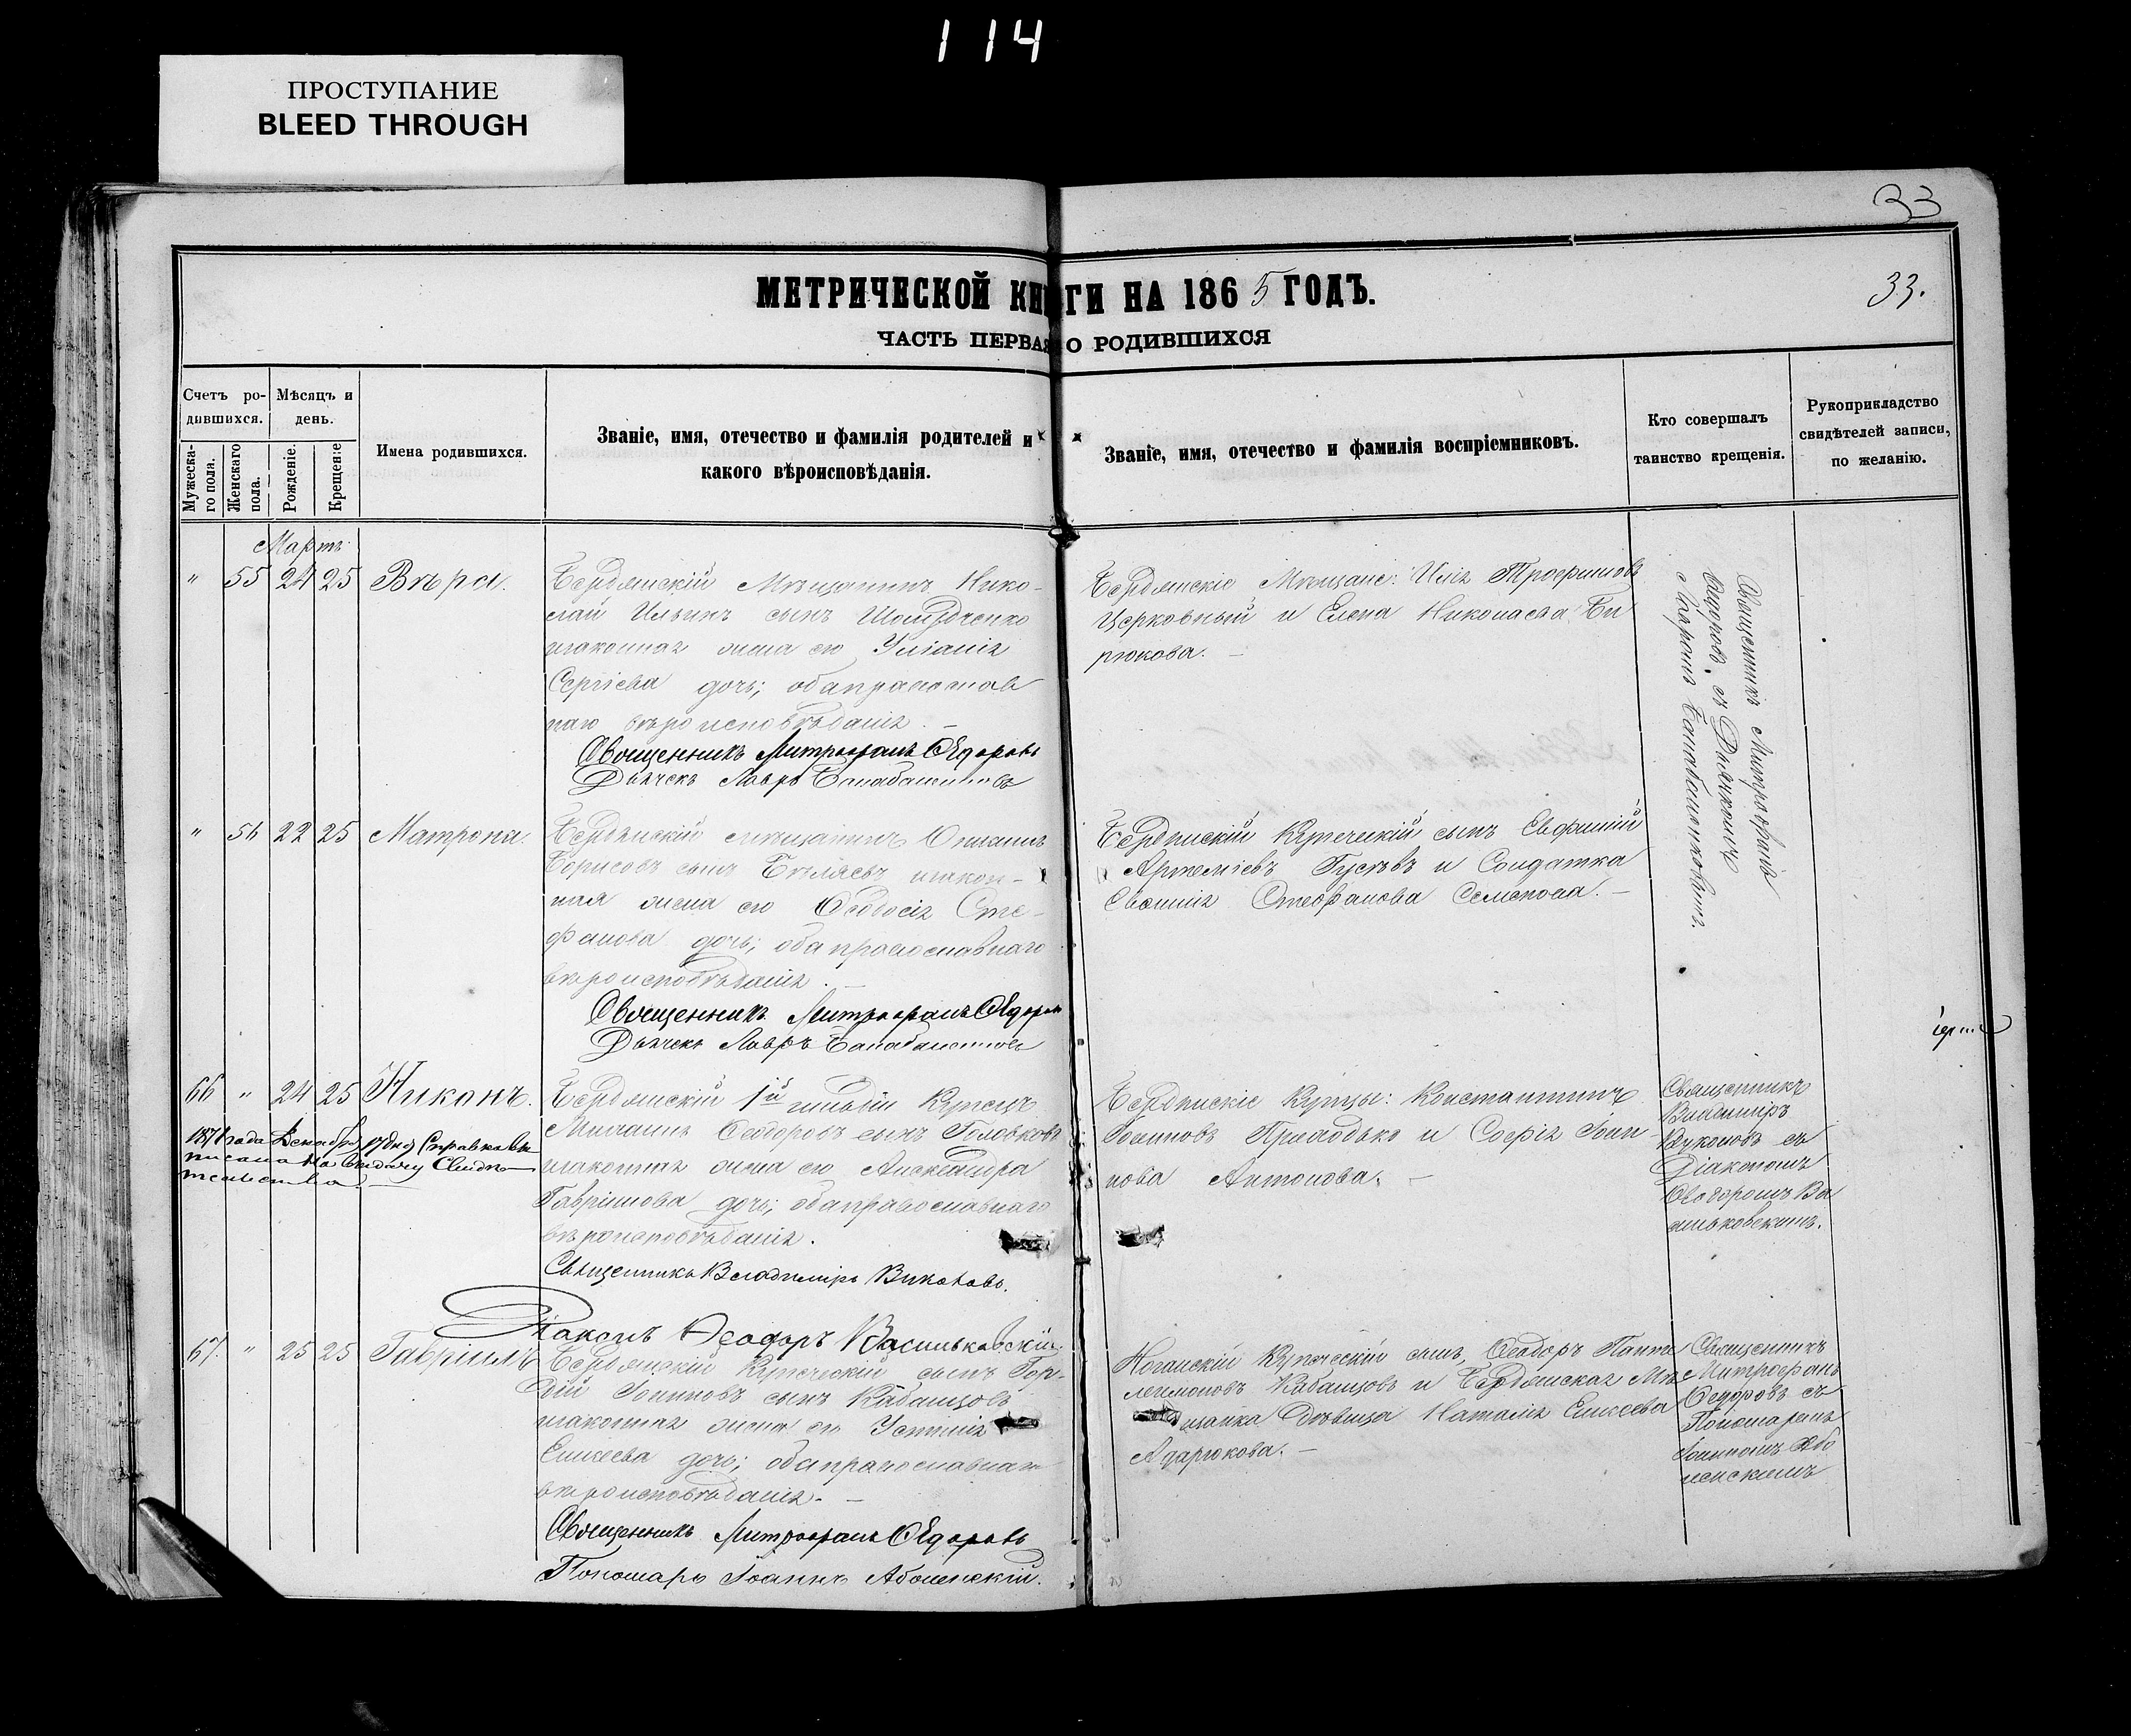 114
ПРОСТУПАНИЕ
BLEED THROUGH
33
МЕТРИЧЕСКОЙ КНИГИ НА 1865 ГОДЪ.
33.
ЧАСТЬ ПЕРВАЯ О РОДИВШИХСЯ
Счетъ ро-
дившихся.
Мужеска-
го пола.
Женскаго
пола.
Мѣсяцъ и
день.
Рожденіе.
Крещеніе
Имена родившихся.
Званіе, имя, отечество и фамилія родителей и
какого вѣроисповѣданія.
Званіе, имя, отечество и фамилія воспріемниковъ.
Кто совершалъ
таинство крещенія.
Рукоприкладство
свидѣтелей записи,
по желанію.
Мартъ
" 55 24 25 Вѣра.
Бердянскій Мѣщанинъ Нико-
лай Ильинъ сынъ
законная жена его Уліанія
Сергіева дочь; оба православ
наго вѣроисповѣданія. —
Священникъ Митрофанъ Ѳедоровъ
Дьячекъ Лавръ
Бердянскіе Мѣщане: Илія Трофимовъ
Церковный и Елена Николаева Би
рюкова. —
Священникъ Митрофанъ
Ѳедоровъ съ Дьячкомъ
Лавромъ
" 56 22 25 Матрона.
Бердянскій мѣщанинъ
Борисовъ сынъ Бѣляевъ закон-
ная жена его Ѳеодосія Сте-
фанова дочь; оба православнаго
вѣроисповѣданія. —
Священникъ Митрофанъ Ѳедоровъ
Дьячекъ Лавръ
Бердянскій Купеческій сынъ Евфимій
Артеміевъ Гусевъ и Солдатка
Стефанова Семенова. —
66 " 24 25 Никонъ.
1871 года Декабря дня Справка вы
писана на выдачу Свидѣ
тельства. —
Бердянскій 1й гильдіи Купецъ
Михаилъ Ѳеодоровъ сынъ Головковъ
законная жена его Александра
Гавріилова дочь; оба православнаго
вѣроисповѣданія.
Священникъ Владиміръ
Діаконъ Ѳеодоръ Васильковскій.
Бердянскіе Купцы: Константинъ
Іоанновъ Приходько и Софія Іоан-
нова Антонова. —
Священникъ
Владиміръ
съ
Діакономъ
Ѳеодоромъ Ва
сильковскимъ.
67. " 25 25 Гавріилъ
Бердянскій Купеческій сынъ Гор-
дій Іоанновъ сынъ Кабанцовъ
законная жена его Устинія
Елисеева дочь; оба православнаго
вѣроисповѣданія. —
Священникъ Митрофанъ Ѳедоровъ
Пономарь Іоаннъ Аболенскій.
Ногайскій Купеческій сынъ, Ѳеодоръ Панте
леимоновъ Кабанцовъ и Бердянская Мѣ
щанка Дѣвица Наталія Елисеева
Адарюкова. —
Священникъ
Митрофанъ
Ѳедоровъ съ
Пономаремъ
Іоанномъ Або
ленскимъ